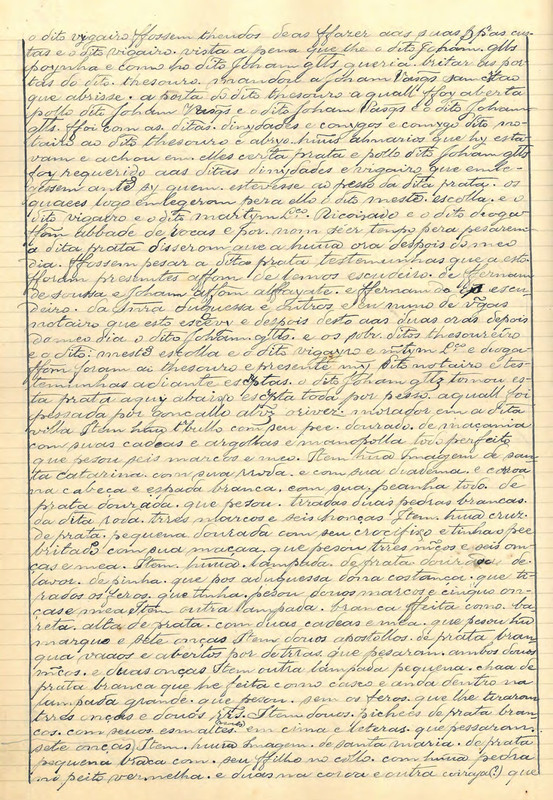 o dito vigairo ffossem theudos deas ffazer aas suas p pas cus
tas e o dito vigairo. vista a pena que lhe o dito Joham. glls
poynha e como ho dito Joham glls queria britar as por
tas do dito. thesouro. mandou a Joham Vasqs sancristao
que abrisse. a porta do dito thesouro a quall ffoy aberta
pollo dito Joham Vasqs e o dito Joham Vasqs e o dito Joham
glls. ffoi com as. ditas. dinydades e conygos e comygo dito no-
tairo ao dito thesouro e abryo huus almarios que hy esta
vam e achou em elles certa prata e pollo dito Joham glls
foy requerido aas ditas dinydades e vigairo que emle-
gessem ante sy quem. estevesse ao pesso da dita prata. os
quaees logo emlegerom pera ello o dito mestre. escolla. e o
dito vigairo e o dito martym Lco. Ricoizado e o dito diogo
ffom abbade de rocas e por. nom seer tempo pera pesarem
a dita prata disserom que a huua ora despois do meo
dia. ffossem pesar a dita prata testemunhas que a esto
fforam presentes affom. de lemos escudeiro. de ffernam
de soussa e Joham affom alfayate. e ffernam do escu-
deiro. da Snra duquessa e outros e eu nuno de
notairo que esto escrevy e despois desto aas duas oras depois
do meo dia o dito Joham glls. e os sobr. ditos thesoureiro
e o dito. mestre escolla e o dito vigayro e mtym Lco e diogo
ffom foram ai thesouro e presente my dito notairo e tes-
temunhas adiante escptas. o dito Joham gllz tomou es
ta prata aquy abaixo escpta toda por pesso. aquall foi
pessada por goncallo alvz orivez. morador em a dita
villa Item huu thuribullo com seu pee. dourado. de maçanaria
com suas cadeas e argollas e manopolla todo perfeito
que pesou seis marcos e meo. Item huua Imagem de san-
ta catarina. com sua Roda. e com sua diadema. e coroa
na cabeça e espada branca. com sua. peanha todo. de
prata dourada. que pesou. tiradas duas pedras brancas.
da dita roda. trres marcos e seis honças. Item. huua cruz.
de prata. pequena dourada com seu crocifixo e tinha o pee
britado com sua maçaa. que pesou trres mcos e seis on-
ças e mea. Item. huua. lampada. de prata dourada. de
lavor. de pinha. que pos a duquessa dona costança. que ti-
rados os feros. que tinha. pesou. douos marcos e cinquo on-
ças e mea Item outra lampada. branca ffeita como ba-
reta. alta de prata. com duas cadeas e mea. que pesou huu
marquo e sete onças Item douos apostollos. de prata bran
qua vaaos e abertos por detrras. que pesaram. ambos douos
mcos. e duas onças Item outra lampada pequena. chaa de
prata branca que he feita como casco e anda dentro na
lampada grande. que pesou. sem os feros. que lhe tirarom
trres onças e douos Item douos. picheés de prata bran-
cos. com seuos esmaltes em cima e leteras. que pessarom.
sete onças) Item. huua Imagem. de santa maria. de prata
pequena braca com. seu ffilho no collo. com huua pedra
no peito vermelha. e duas na coroa e outra correja(?) que